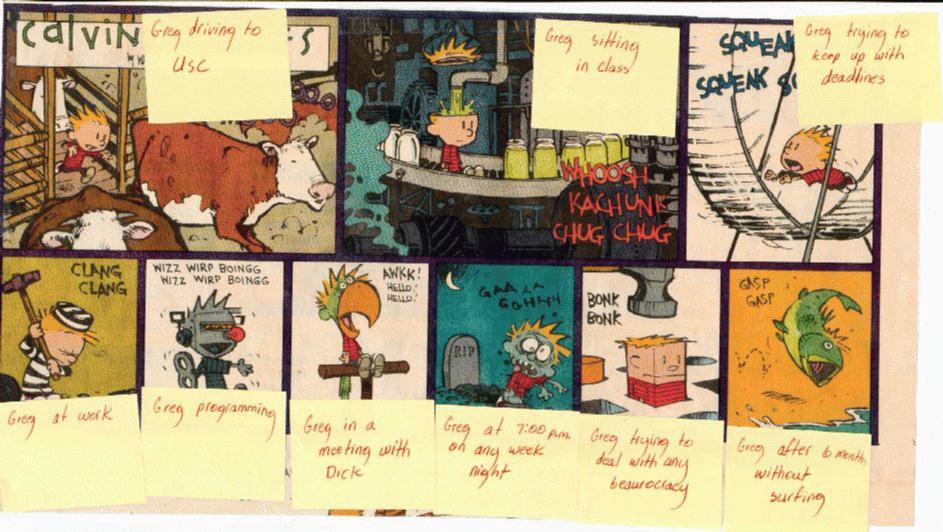 Calvin
Greg driving to
USC
ES
Greg sitting
in class
WHOOSH
KACHUNK
CHUG CHUG
SQUEAK
SQUEAK
Greg trying to
keep up with
deadlines
CLANG
CLANG
Greg at work
WIZZ WIRP BOINGG
WIZZ WIRP BOINGG
Greg programming
AWKK!
HELLO!
HELLO!
Greg in a
meeting with
Dick
GAAAA
GAHHH
RIP
Greg at 7:00 p.m.
on any week
night
BONK
BONK
Greg trying to
deal with any
beaurocracy
GASP
GASP
Greg after 6 months
without
surfing